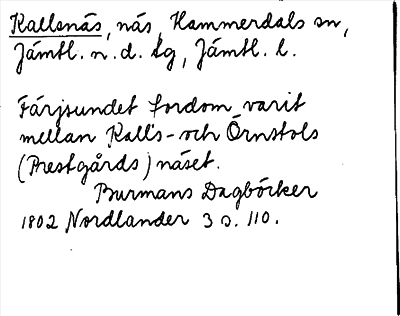 Kallsnäs, näs, Hammerdals sn,
Jämtl. n. d. tg, Jämtl. l.
Färjsundet fordom varit
mellan Kall's- och Örnstols
(Prestgårds) näset.
Burmans Dagböcker
1802 Nordlander 3 s. 110.